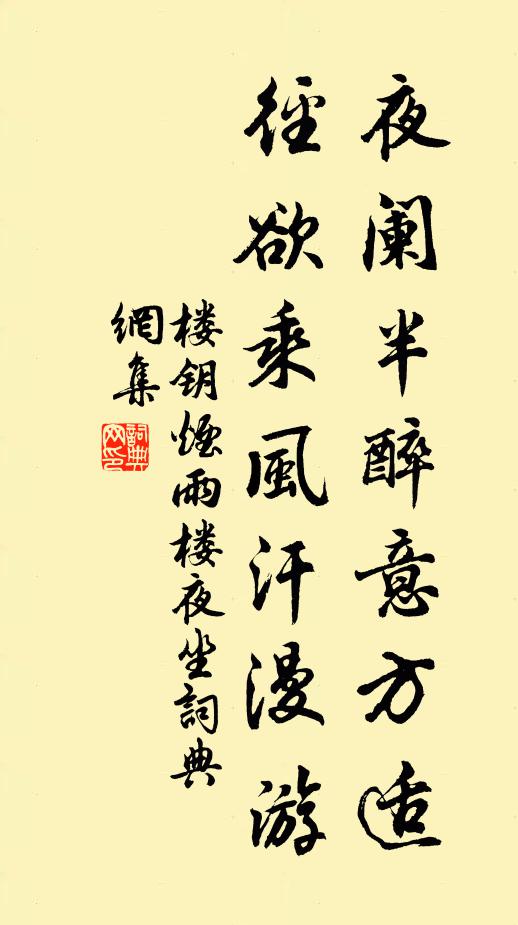 夜阑半醉意方适
径欲乘風汗漫游
楼钥烟雨楼夜坐詞典
網集
詞典
网印